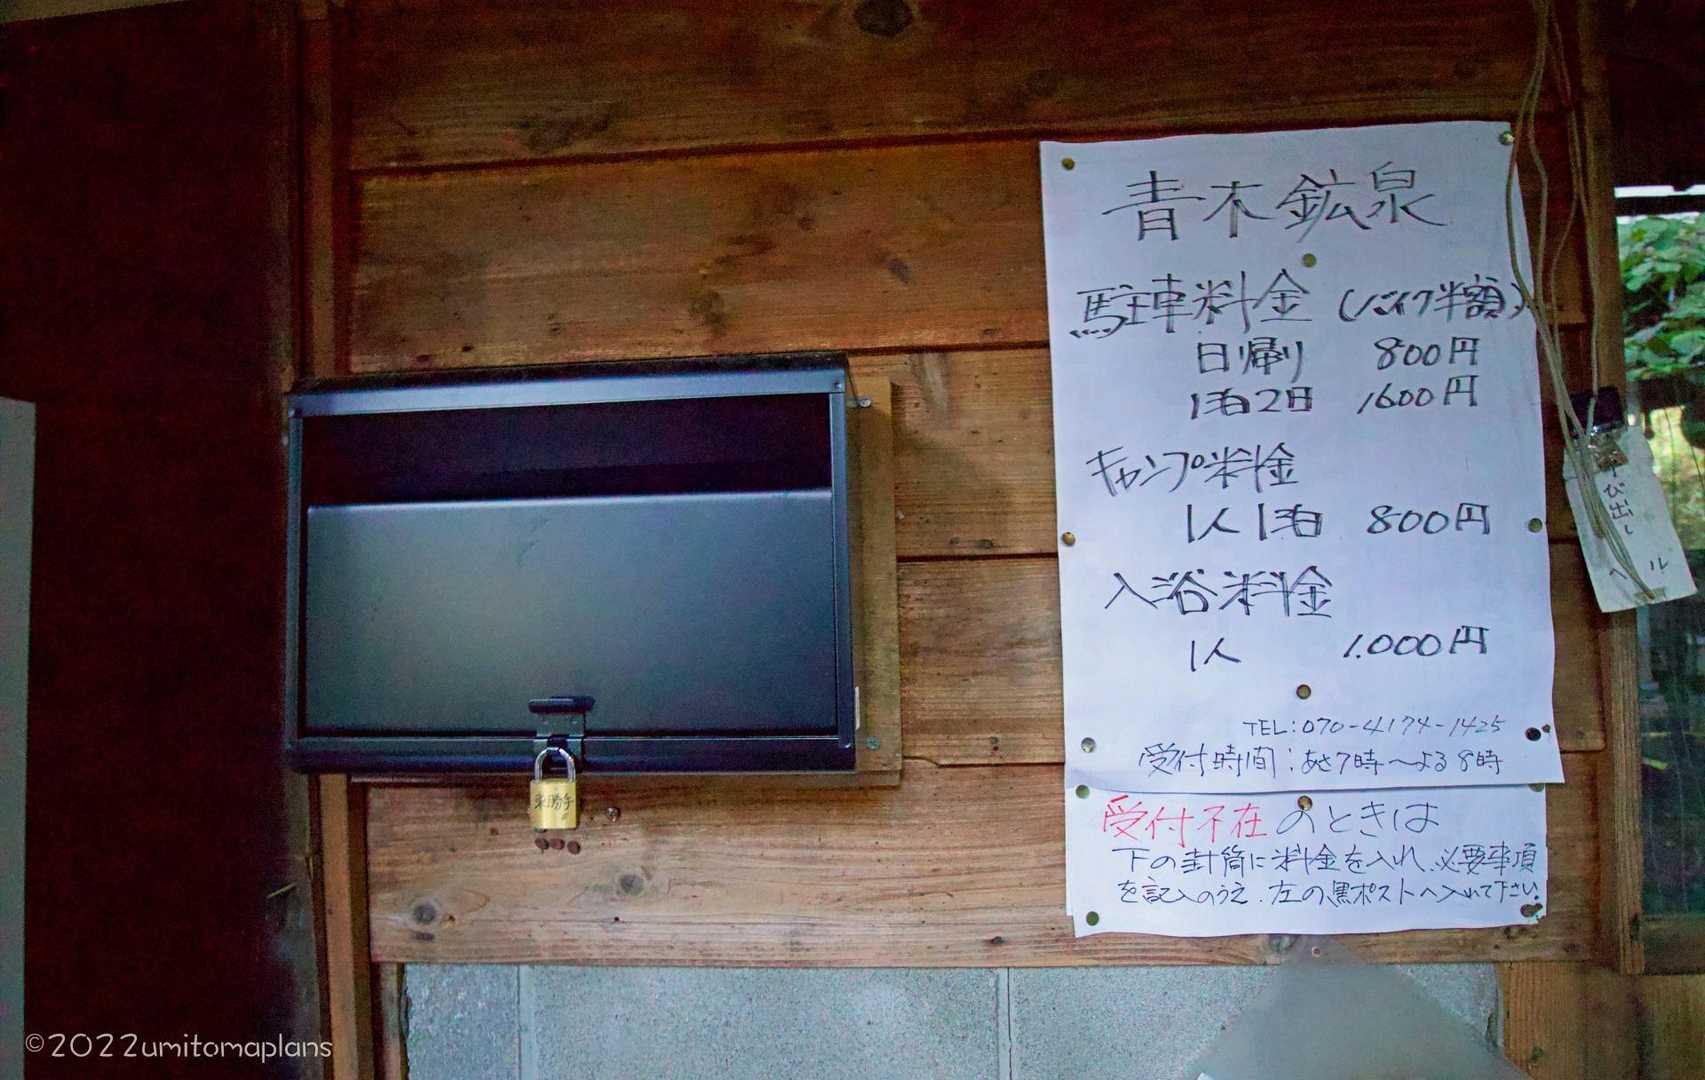 青木鉱泉
駐車料金 (バイク半額)
日帰り 800円
1泊2日 1600円
キャンプ料金
1人1泊 800円
入浴料金
1人 1.000円
TEL:070-4174-1425
受付時間:あさ7時〜よる8時
受付不在のときは
下の封筒に料金を入れ、必要事項
を記入のうえ、左の黒ポストへ入れて下さい
呼び出し
ベル
©2022umitomaplans